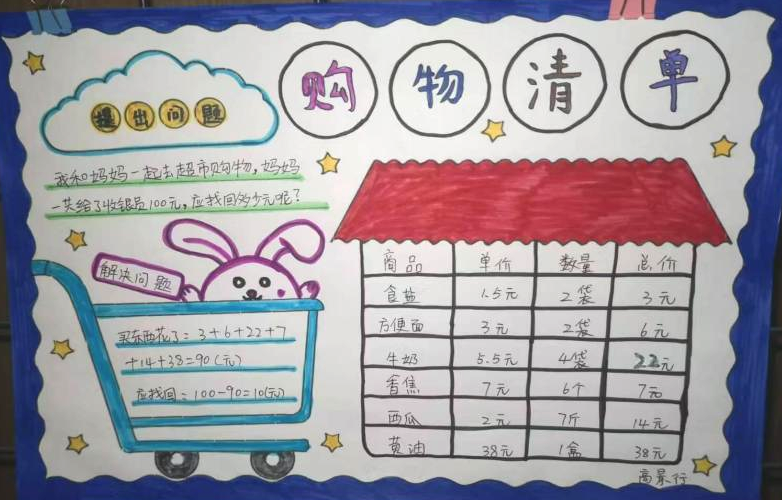 购物清单
提出问题
我和妈妈一起去超市购物,妈妈
一共给了收银员100元,应找回多少元呢?
解决问题
买东西花了:3+6+22+7
+14+38=90(元)
应找回:100-90=10(元)
商品 单价 数量 总价
食盐 1.5元 2袋 3元
方便面 3元 2袋 6元
牛奶 5.5元 4袋 22元
香焦 7元 6个 7元
西瓜 2元 7斤 14元
黄油 38元 1盒 38元
高景行